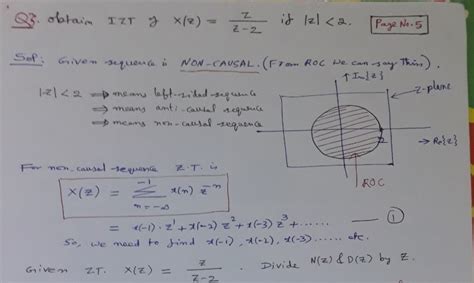 Q3. obtain IZT of X(z) = z/(z-2) if |z| < 2.
Page No. 5
Solⁿ: Given sequence is NON-CAUSAL. (From ROC we can say this).
|z| < 2 ⇒ means left-sided sequence
⇒ means anti-causal sequence
⇒ means non-causal sequence
Im{z}
z-plane
Re{z}
2
ROC
For non-causal sequence Z.T. is
X(z) = Σ_{n=-∞}^{-1} x(n) z^{-n}
= x(-1)·z¹ + x(-2) z² + x(-3) z³ + ...... — ①
So, we need to find x(-1), x(-2), x(-3)...... etc.
Given ZT. X(z) = z/(z-2). Divide N(z) & D(z) by z.